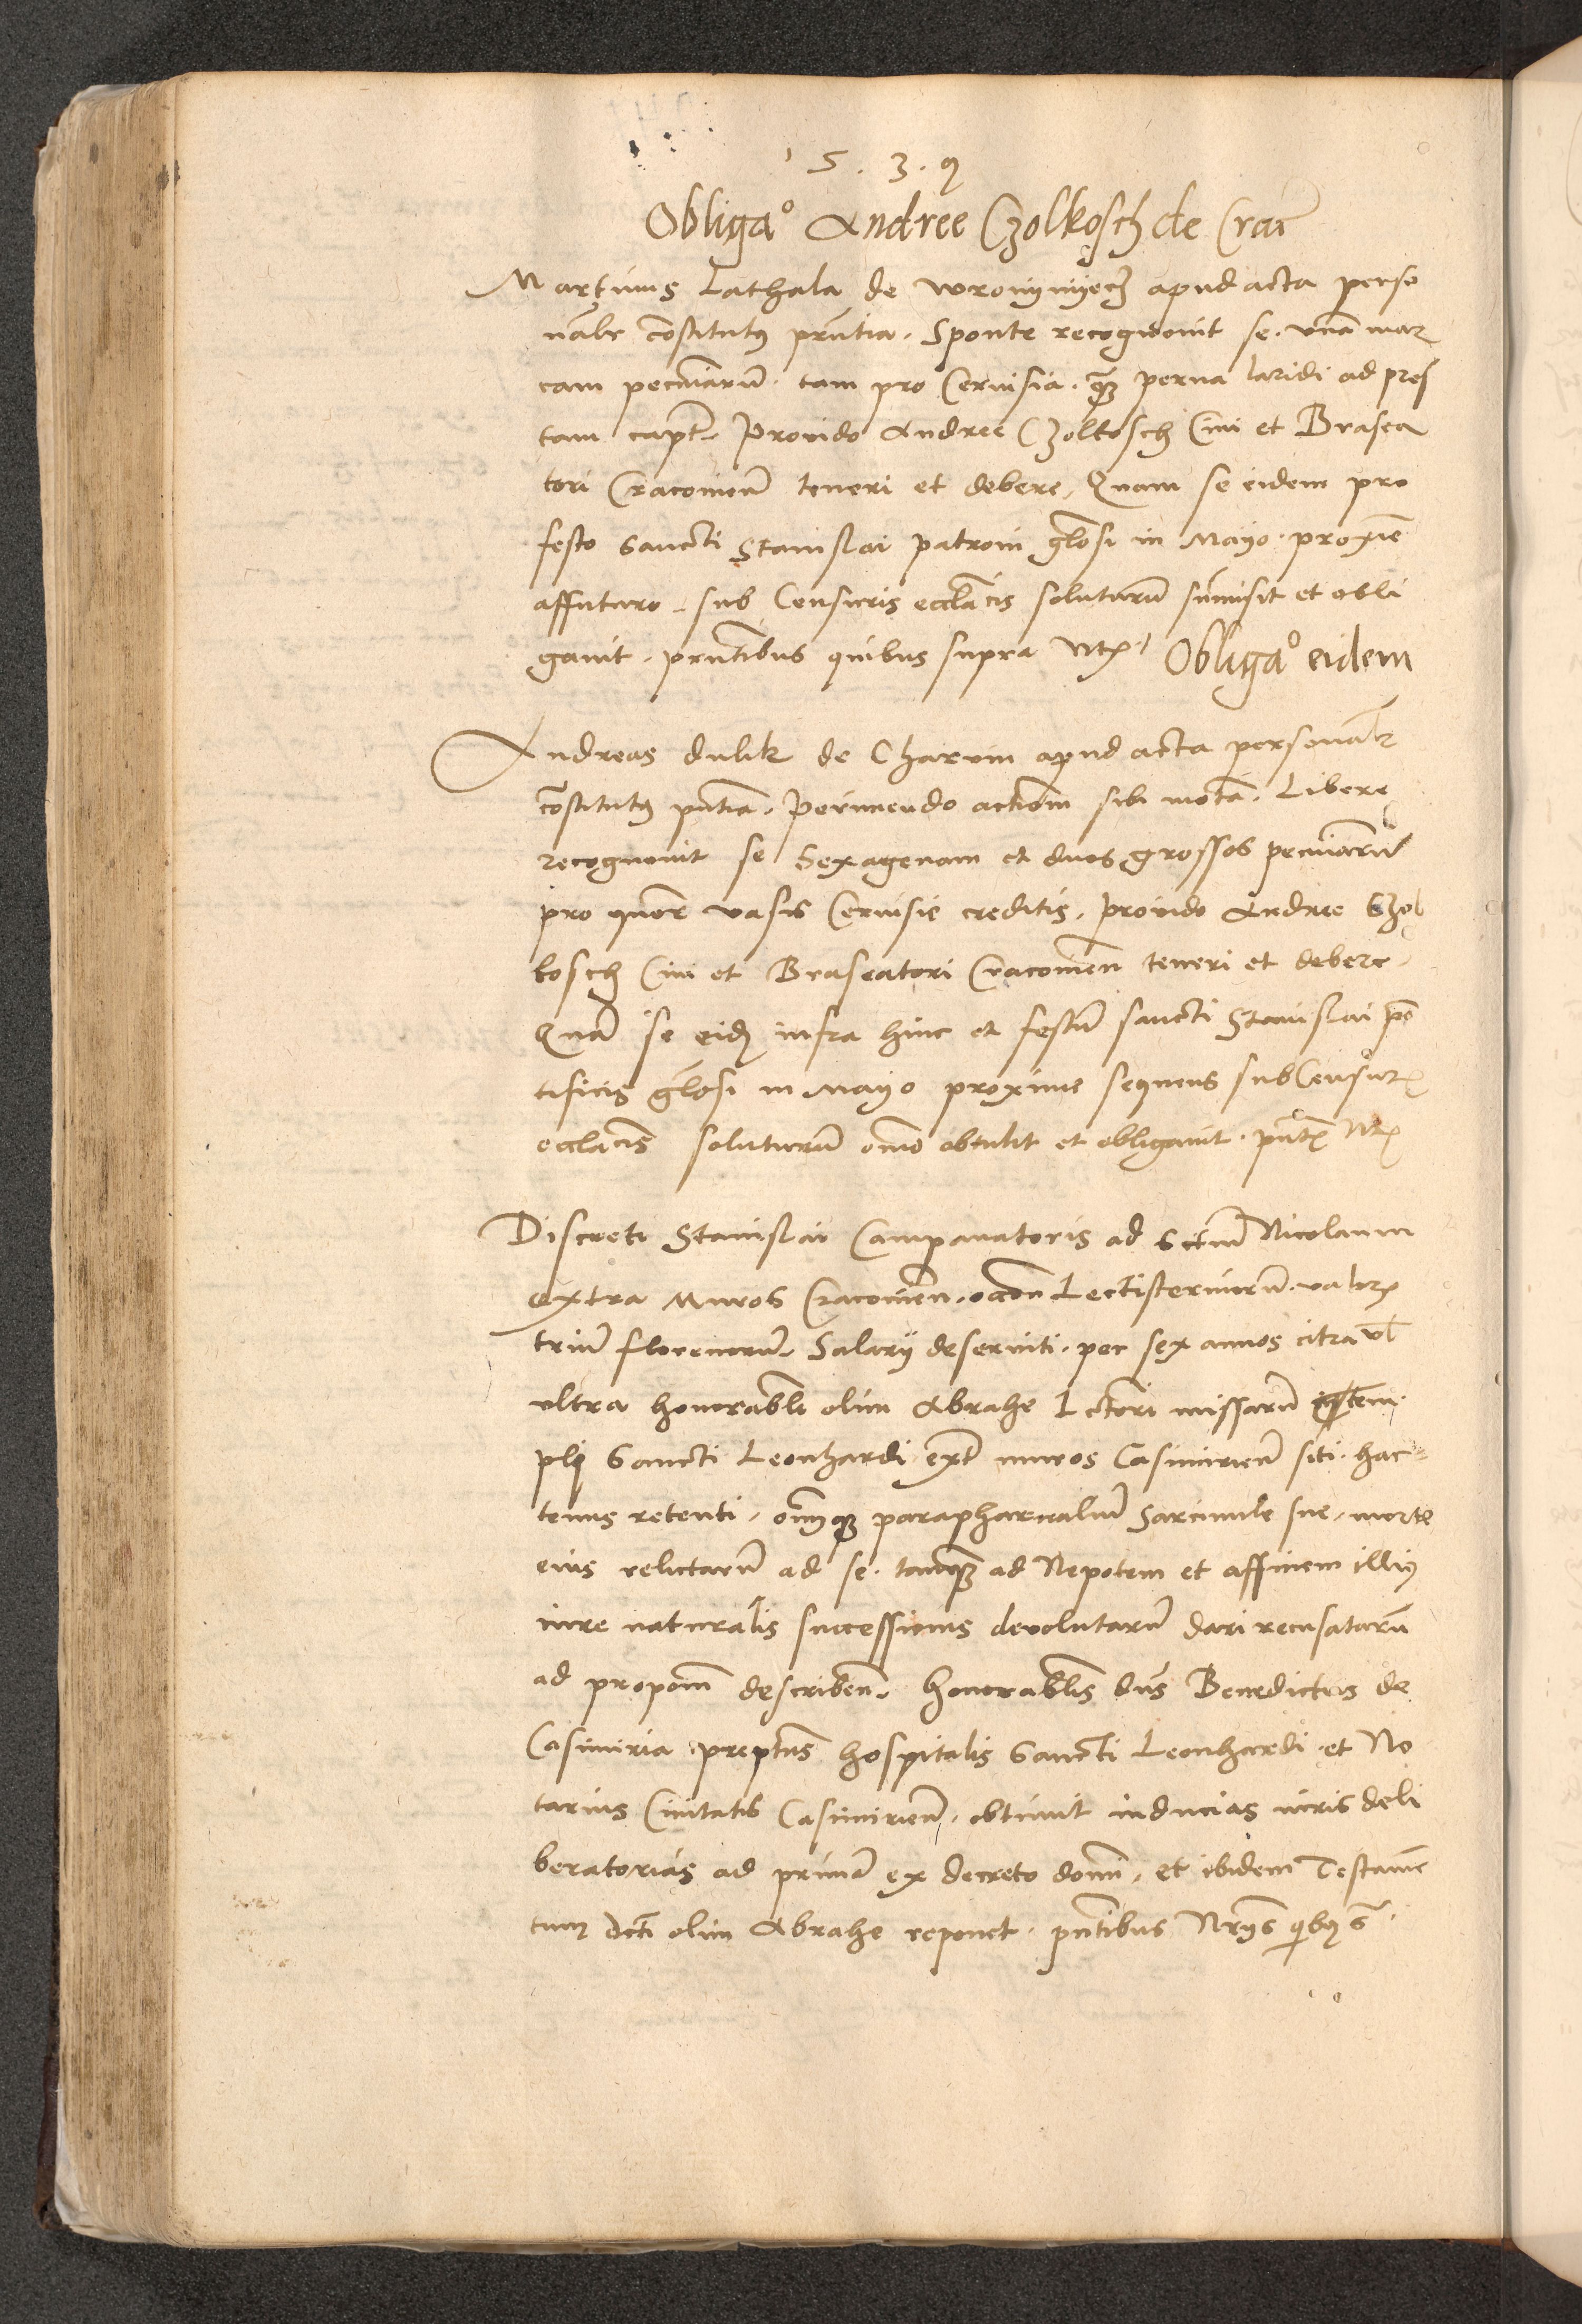 1 5 . 3 . 9
Obliga° Andree Czolkosch de Crac
Martinus Lathala de Wronynyecz apud acta perso
nalr constitutus prntia . Sponte recognovit se . vna mar
cam pecuniaru . tam pro Cervisia . qua perna laridi ad pres
tam capt . Provido Andree Czolkosch Civi et Brasea
tori Cracovien teneri et debere , Quam se eidem pro
festo Sancti Stanislai patroni glosi in Mayo . proxie
affuturo . sub Censuris ecclacis soluturu sumisit et obli
gavit . prntibus quibus supra Nt Obliga° eidem
Andreas dulik de Charvin apud acta personalr
constitutus pntia . Perimendo actiom sibi mota . Libere
recognovit se Sexagenam et duos grossos pecuniaru
pro quor vasis Cervisie creditis , provido Andree Czol
kosch Civi et Braseatori Cracovien teneri et debere .
Qua se eid infra hinc et festu sancti Stanislai po
tificis glosi in Mayo proxime sequens sub Censur
ecclacis soluturu omo obtulit et obligavit . pnt Nt
Discreti Stanislai Campanatoris ad Sctum Nicolaum
extra Muros Cracovien . occon Lectisterniorum . valor
triu florenoru . Salarii deserviti . per sex annos citra vl
ultra honorabli olim Abrahe Lctori missaru
plj Sancti Leonhardi ext muros Casimirien siti . hac
tenus retenti , omiq paraphernaliu Sarcinule sue , morte
eius relictaru ad se . tanq ad Nepotem et affinem illius
iure naturalis successionis devolutaru dari recusataru
ad propom describen . honorablis dns Benedictus de
Casimiria preptus hospitalis Sancti Leonhardi et No
tarius Civitatis Casimirien . obtinuit inducias iuris deli
beratorias ad prima ex decreto domi , et ibidem Testame
tum dcti olim Abrahe reponet . pntibus Nrys qibus s